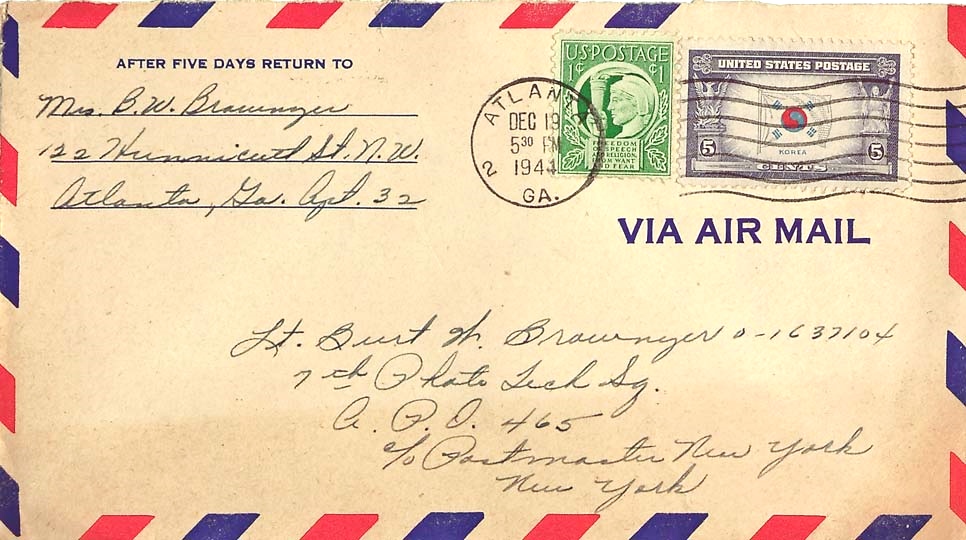 AFTER FIVE DAYS RETURN TO
Mrs. B. W. Brownyer
122 Hunnicutt St. N.W.
Atlanta, Ga. Apt. 32
ATLANTA
DEC 19
5 30 PM
1944
2
GA.
U.S.POSTAGE
1¢ ¢1
FREEDOM
OF SPEECH
AND RELIGION,
FROM WANT
AND FEAR
UNITED STATES POSTAGE
KOREA
5 5
CENTS
VIA AIR MAIL
Lt. Burt W. Brownyer O-1637104
7th Photo Tech Sq.
A. P. O. 465
c/o Postmaster New York
New York